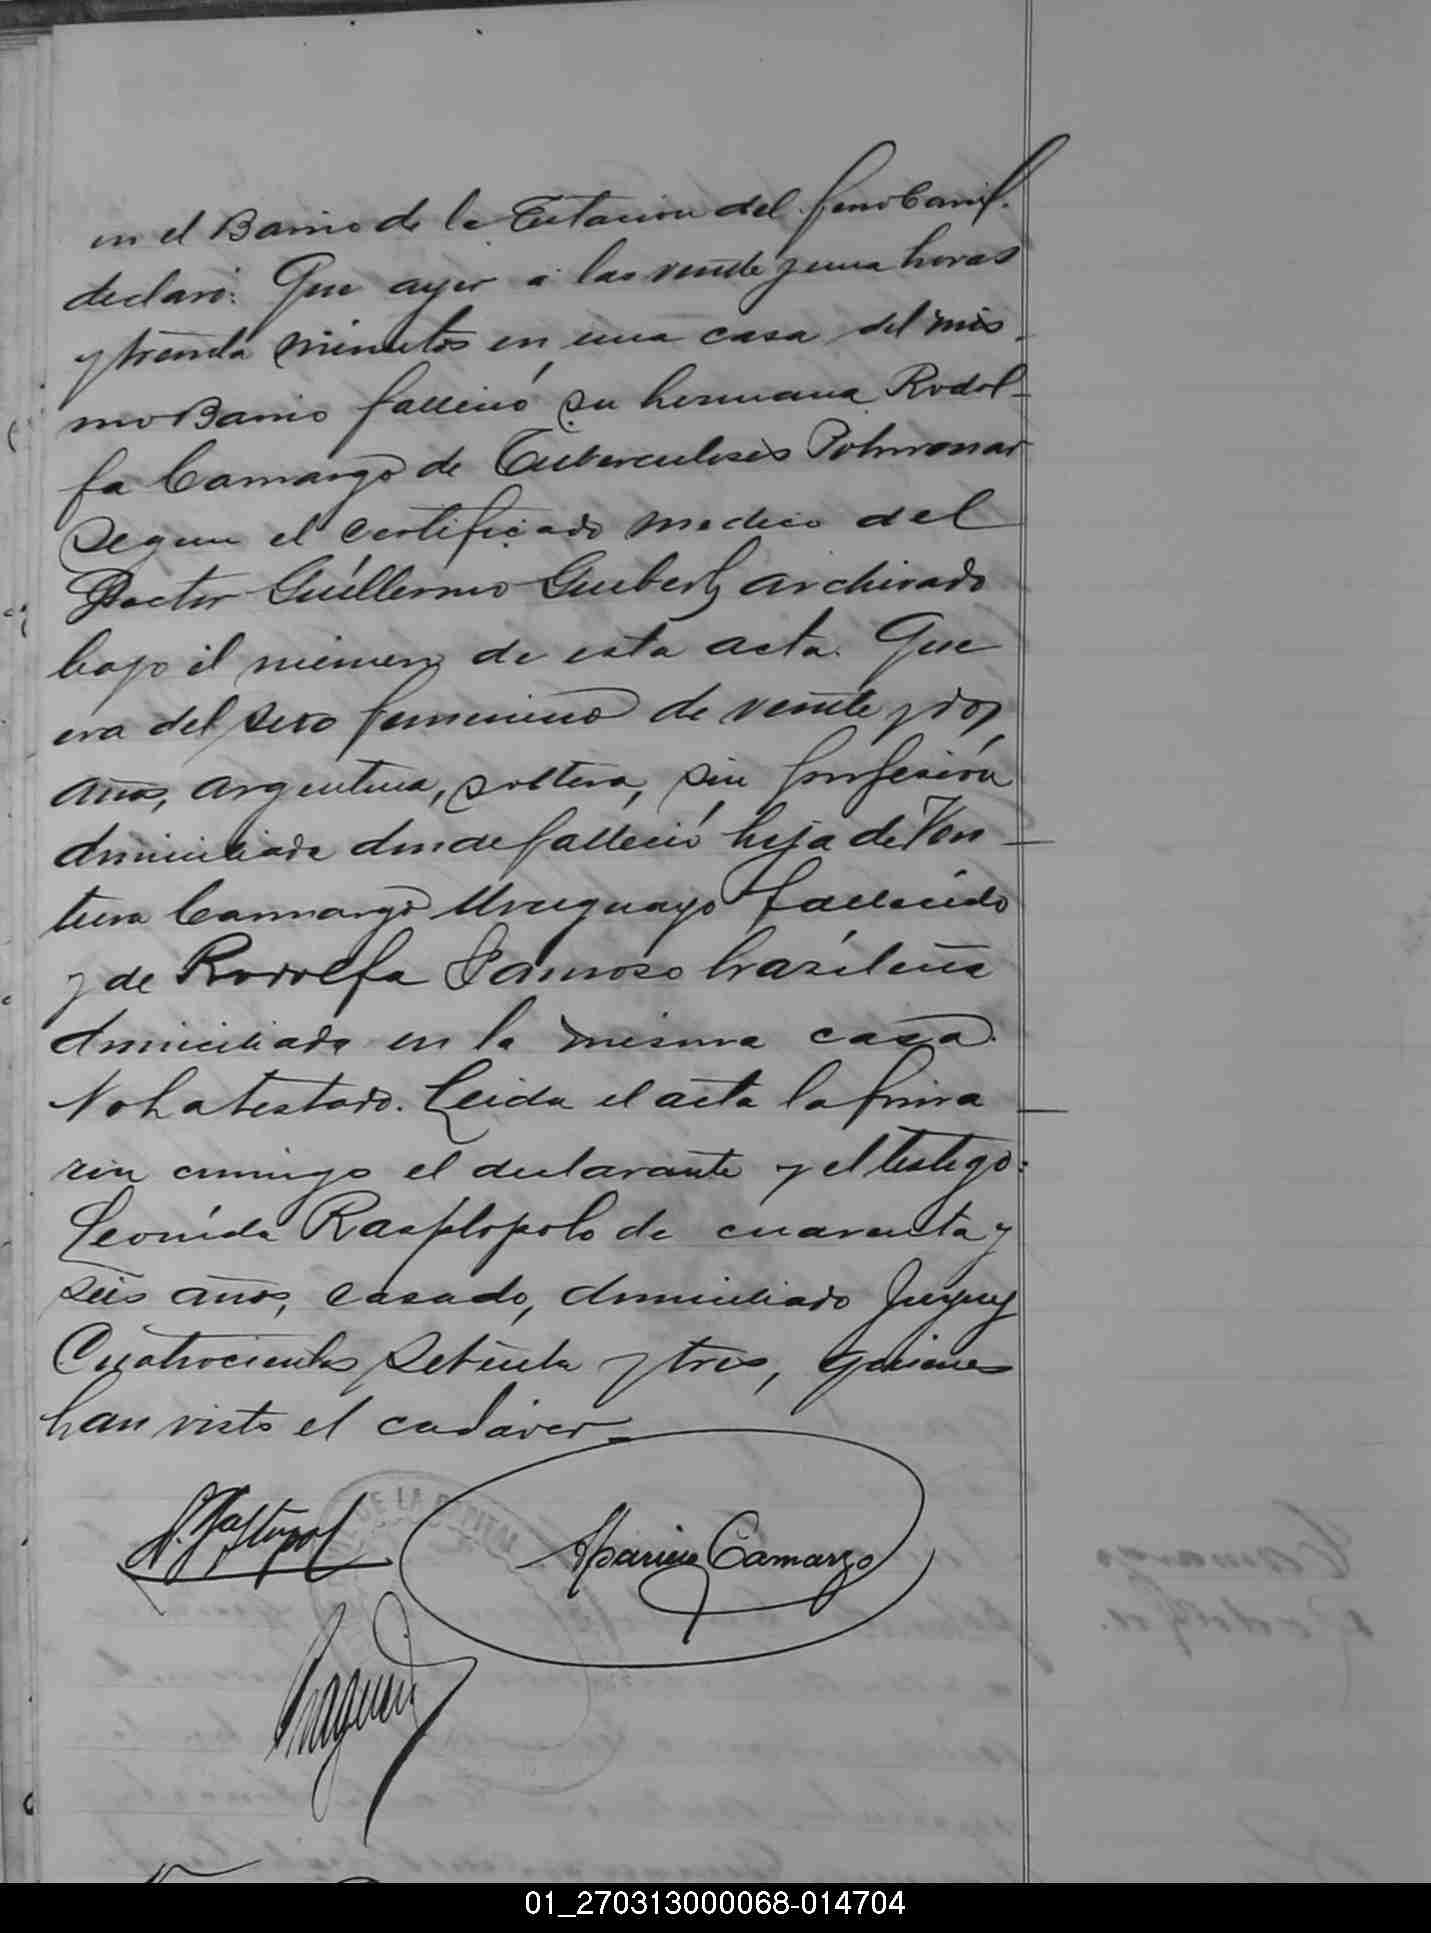 en el Barrio de la Estacion del ferro Carril.
declaró: Que ayer á las veinte y una horas
y treinta minutos en una casa del mis-
mo Barrio falleció su hermana Rodol-
fa Camargo de Tuberculosis Pulmonar
segun el certificado medico del
Doctor Guillermo archivado
bajo el número de esta acta. Que
era del sexo femenino de veinte y dos
años, argentina, soltera, sin profesión
domiciliada donde falleció hija de Ven
tura Camargo Uruguayo fallecido
y de Rodolfa brasileña
domiciliada en la misma casa.
No ha testado. Leida el acta la firma
ron conmigo el declarante y el testigo:
Leonida Rasplopolo de cuarenta y
seis años, casado, domiciliado Jujuy
Cuatrocientos setenta y tres, quienes
han visto el cadáver.
DE LA CAPITAL
Aparicio Camargo
01_270313000068-014704